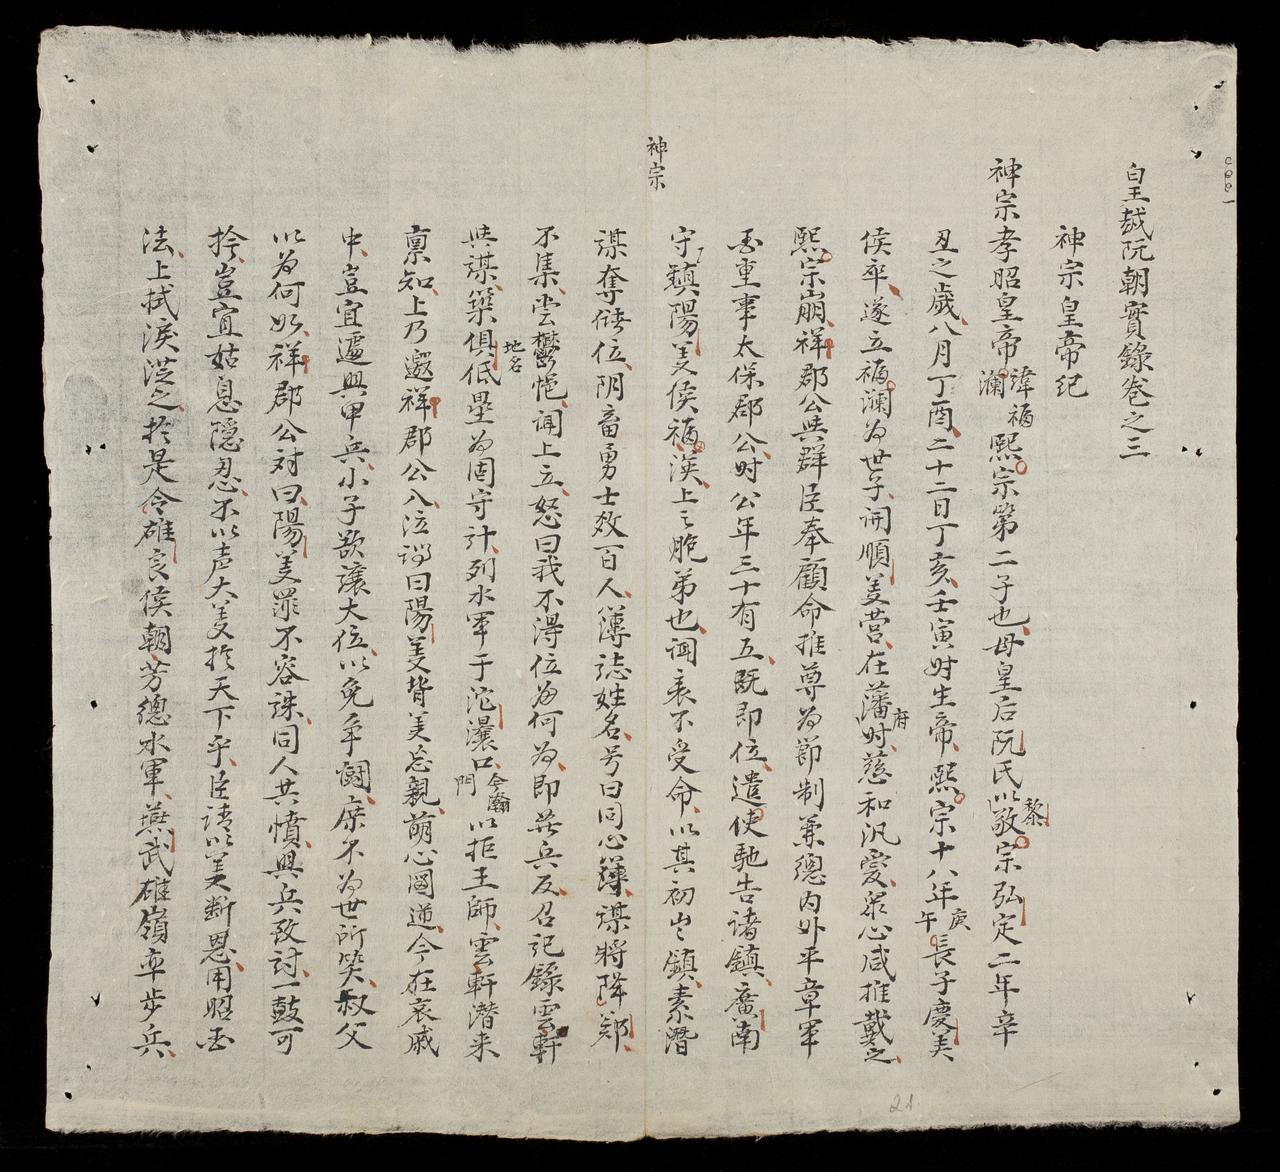 皇越阮朝實錄卷之三
神宗皇帝紀
神宗孝昭皇帝諱福瀾熙宗第二子也母皇后阮氏以黎敬宗弘定二年辛
丑之歲八月丁酉二十二日丁亥壬寅时生帝熙宗十八年庚午長子慶美
侯卒遂立福瀾为世子開順美营在藩府时慈和汎愛眾心咸推戴之
熙宗崩祥郡公與群臣奉顧命推尊为節制兼總内外平章軍
国重事太保郡公时公年三十有五既即位遣使馳告諸鎮廣南
守鎮陽美侯福渶上之胞弟也闻哀不受命以其初出鎮素潛
神宗
謀奪儲位阴畜勇士效百人簿誌姓名号曰同心簿謀將降鄭
不集尝欝悒闻上立怒曰我不得位為何为即舉兵反召記錄雲軒
與謀築俱低地名壘为固守計列水軍于沱瀼口今瀚門以拒王師雲軒潛来
禀知上乃邀祥郡公入泣謂曰陽美背美忘親萌心圖逆今在哀戚
中豈宜遽興甲兵小子欲讓大位以免争鬪庶不为世所笑叔父
以为何如祥郡公対曰陽美罪不容誅同人共憤興兵致討一鼓可
擒豈宜姑息隐忍不以声大美於天下乎臣請以美断恩用昭国
法上拭淚從之於是令雄 侯朝芳總水軍燕武雄嶺率步兵
21